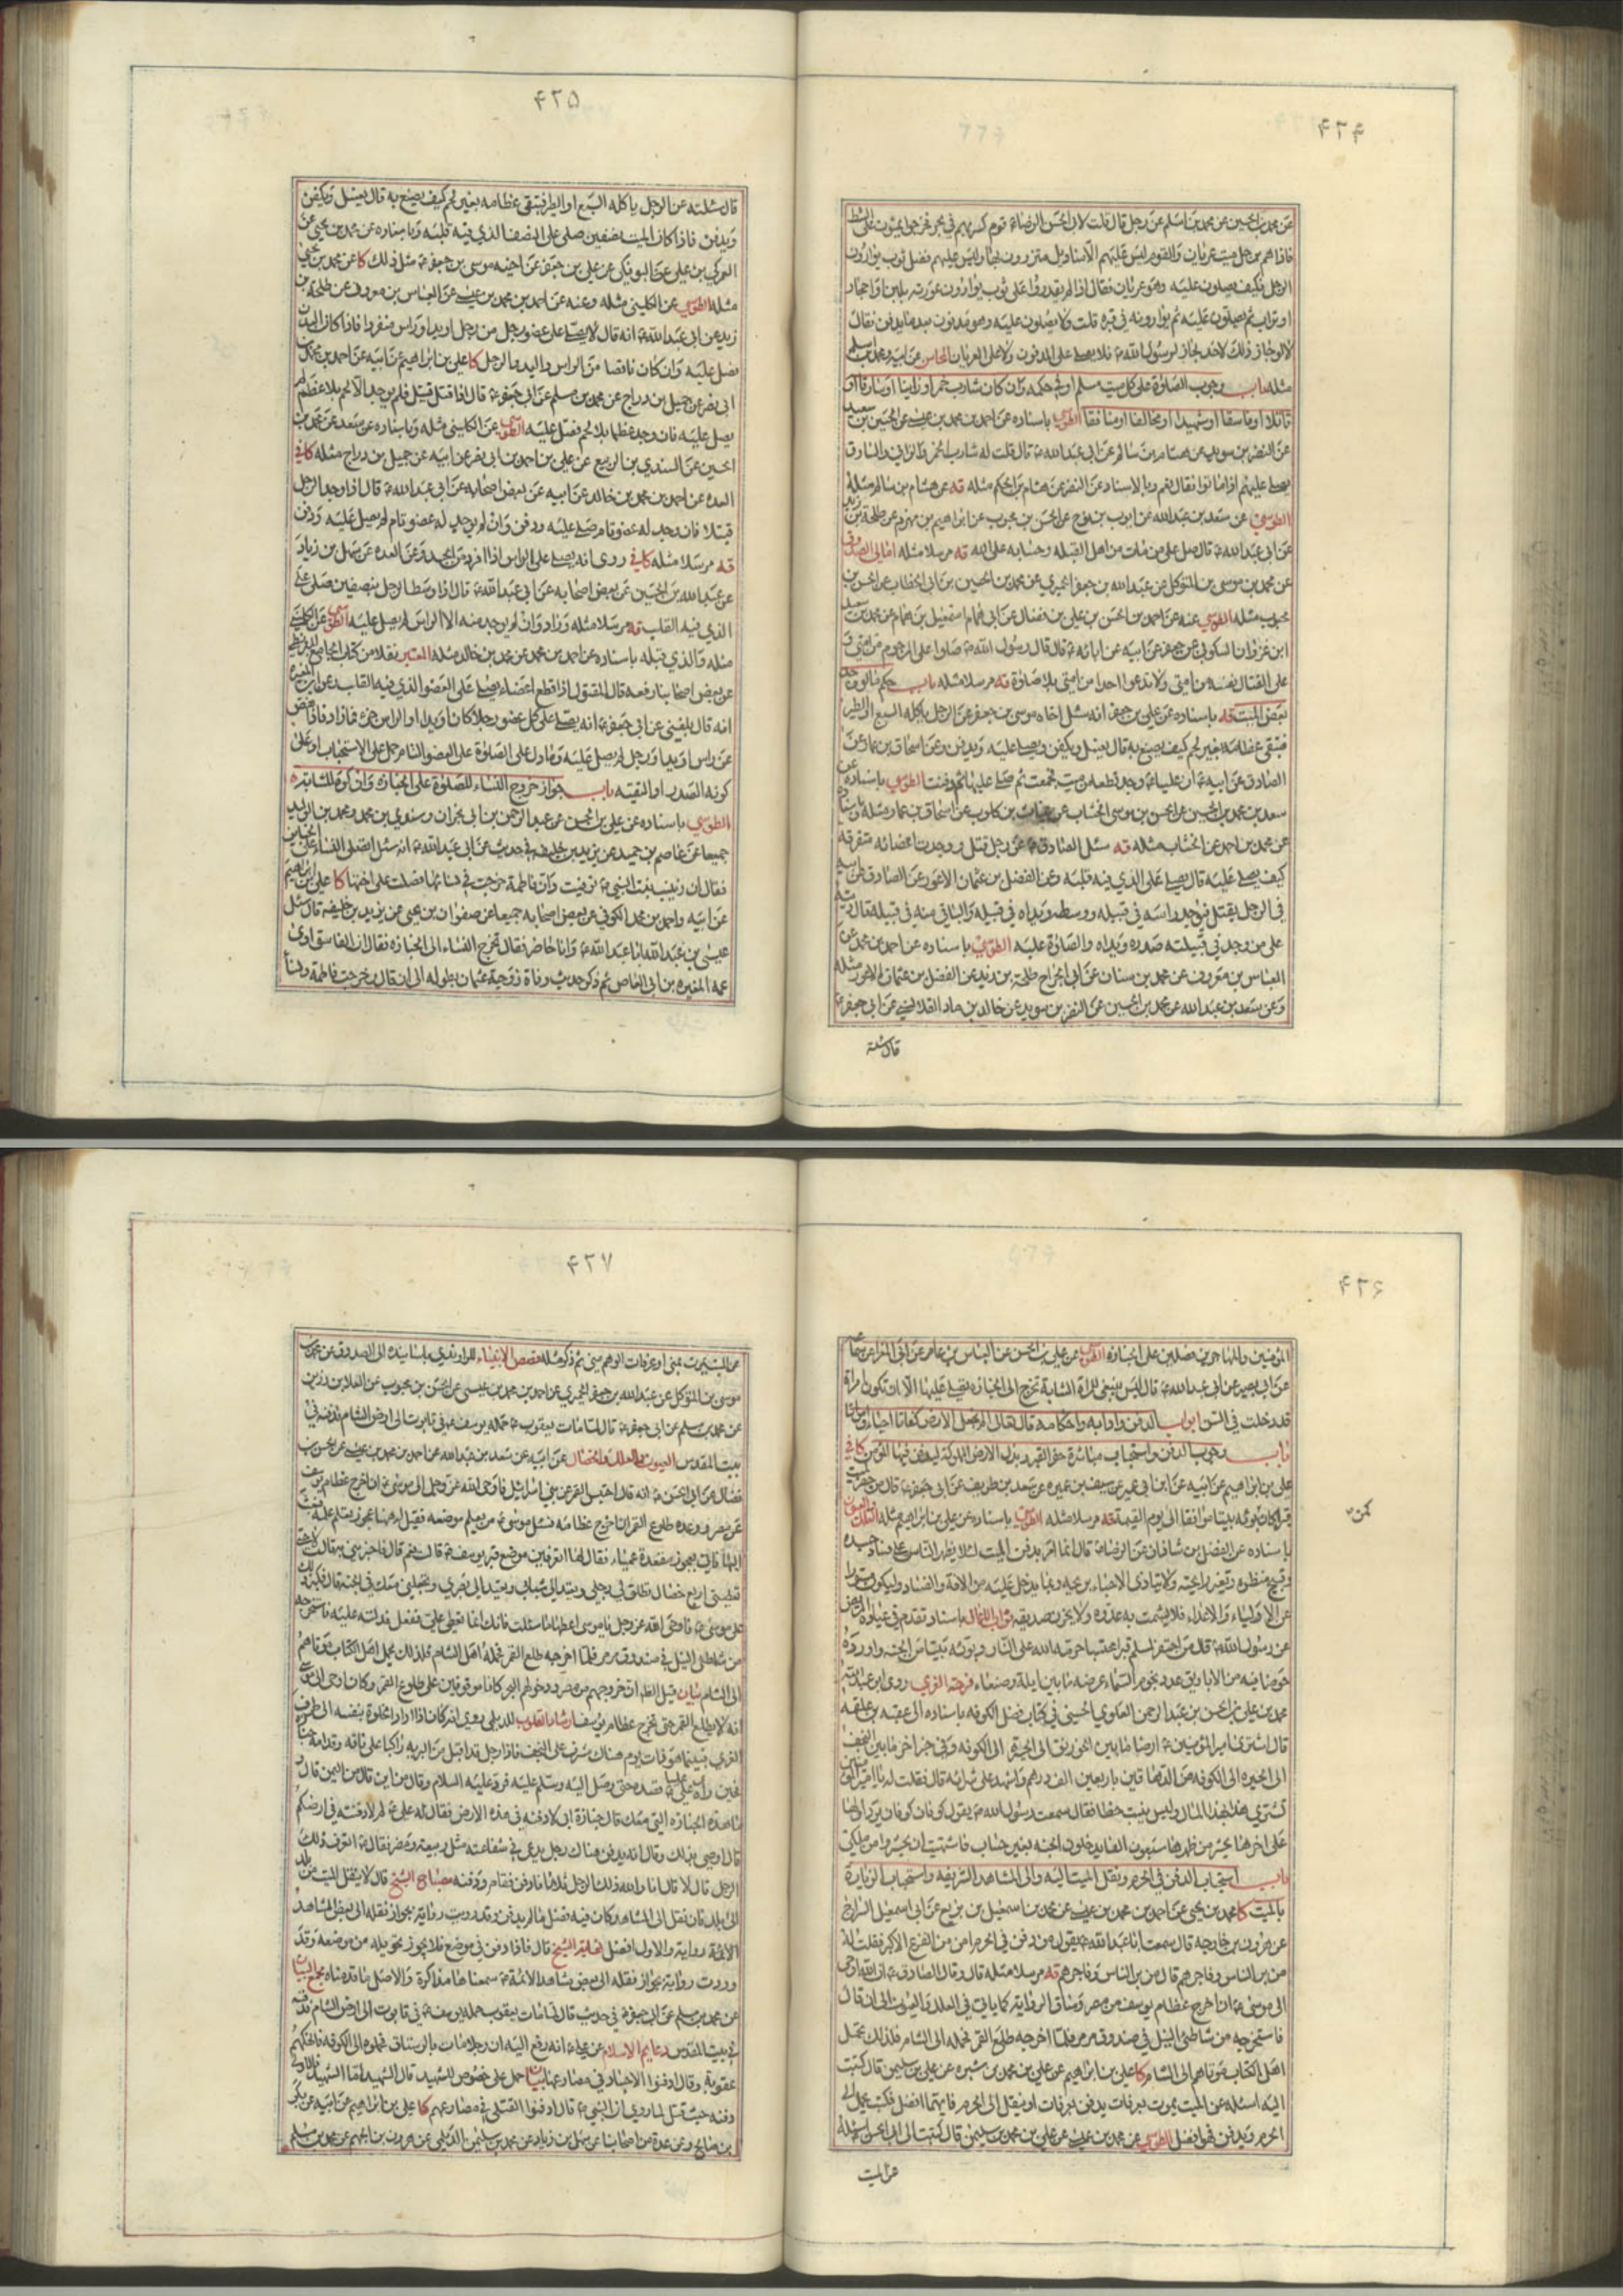 ۴۲۴
عن محمد بن الحسين عن محمد بن اسلم عن رجل قال قلت لابي الحسن الرضاء قوم كسر بهم في بحر فخرجوا يمشون على الشط
فاذا هم برجل ميت عريان والقوم ليس عليهم الا مناديل متزرون بها وليس عليهم فضل ثوب يوارون
الرجل فكيف يصلون عليه وهو عريان فقال اذا لم يقدروا على ثوب يوارون عورته بلبن او احجار
او تراب ثم يصلون عليه ثم يوارونه في قبره قلت ولا يصلون عليه وهو مدفون بعد ما يدفن فقال
لا لو جاز ذلك لاحد لجاز لرسول الله فلا يصلى على المدفون ولا على العريان المحاسن عن ابيه ومحمد بن اسلم
مثله باب وجوب الصلوة على كل ميت مسلم او في حكمه وان كان شارب خمر او زانيا او سارقا او
قاتلا او فاسقا او شهيدا او مخالفا او منافقا الطوسي باسناده عن احمد بن محمد بن عيسى عن الحسين بن سعيد
عن النضر بن سويد عن هشام بن سالم عن ابي عبد الله قال قلت له شارب الخمر والزاني والسارق
يصلى عليهم اذا ماتوا فقال نعم وبالاسناد عن النضر عن هشام بن الحكم مثله قه عن هشام بن سالم مثله
الطوسي عن سعد بن عبد الله عن ايوب بن نوح عن الحسن بن محبوب عن ابراهيم بن مهزم عن طلحة بن زيد
عن ابي عبد الله قال صل على من مات من اهل القبله وحسابه على الله قه مرسلا مثله امالي الصدوق
عن محمد بن موسى بن المتوكل عن عبد الله بن جعفر الحميري عن محمد بن الحسين بن ابي الخطاب عن الحسن بن
محبوب مثله الطوسي عنه عن احمد بن الحسن بن علي بن فضال عن ابي همام اسمعيل بن همام عن محمد بن سعيد
ابن غزوان السكوني عن جعفر عن ابيه عن ابائه قال قال رسول الله صلوا على المرجوم من امتي و
على القتال نفسه من امتي ولا تدعوا احدا من امتي بلا صلوة قه مرسلا مثله باب حكم ما لو وجد
بعض الميت قه باسناده عن علي بن جعفر انه سئل اخاه موسى بن جعفر عن الرجل ياكله السبع او الطير
فتبقى عظامه بغير لحم كيف يصنع به قال يغسل ويكفن ويصلى عليه ويدفن وعن اسحاق بن عمار عن
الصادق عن ابيه ان عليا وجد قطعا من ميت فجمعت ثم صلى عليها ثم دفنت الطوسي باسناده عن
سعد بن محمد بن الحسين عن الحسن بن موسى الخشاب عن غياث بن كلوب عن اسحاق بن عمار مثله وباسناده
عن محمد بن احمد عن الخشاب مثله قه سئل الصادق عن رجل قتل ووجدت اعضائه متفرقه
كيف يصلى عليه قال يصلى على الذي فيه قلبه وعن الفضل بن عثمان الاعور عن الصادق عن ابيه
في الرجل يقتل فيوجد راسه في قبيله ووسطه ويداه في قبيله والباقي منه في قبيله قال ديته
على من وجد في قبيلته صدره ويداه والصلوة عليه الطوسي باسناده عن احمد بن محمد عن
العباس بن معروف عن محمد بن سنان عن ابي الجراح طلحة بن زيد عن الفضل بن عثمان الاعور مثله
وعن سعد بن عبد الله عن محمد بن الحسين عن النضر بن سويد عن خالد بن ماد القلانسي عن ابي جعفر
قال سئلته
۴۲۵
قال سئلته عن الرجل ياكله السبع او الطير فتبقى عظامه بغير لحم كيف يصنع به قال يغسل ويكفن
ويدفن فاذا كان الميت نصفين صلى على النصف الذي فيه قلبه وباسناده عن محمد بن يحيى عن
العمركي بن علي عن البوفكي عن علي بن جعفر عن اخيه موسى بن جعفر مثل ذلك كا عن محمد بن يحيى
مثله الطوسي عن الكليني مثله وعنه عن احمد بن محمد بن عيسى عن العباس بن معروف عن طلحة بن
زيد عن ابي عبد الله انه قال لا يصلى على عضو رجل من رجل او يد او راس منفردا فاذا كان البدن
فصل عليه وان كان ناقصا من الراس واليد والرجل كا علي بن ابراهيم عن ابيه عن احمد بن محمد بن
ابي نصر عن جميل بن دراج عن محمد بن مسلم عن ابي جعفر قال اذا قتل قتيل فلم يوجد الا لحم بلا عظم لم
يصل عليه فان وجد عظما بلا لحم فصل عليه الطوسي عن الكليني مثله وباسناده عن سعد عن محمد بن
الحسين عن السندي بن الربيع عن علي بن احمد بن ابي نصر عن ابيه عن جميل بن دراج مثله كافي
العده عن احمد بن محمد بن خالد عن ابيه عن بعض اصحابه عن ابي عبد الله قال اذا وجد الرجل
قتيلا فان وجد له عضو تام صلى عليه ودفن وان لم يوجد له عضو تام لم يصل عليه ودفن
قه مرسلا مثله كافي روى انه يصلى على الراس اذا افرد من الجسد وعن العده عن سهل بن زياد
عن عبد الله بن الحسين عن بعض اصحابه عن ابي عبد الله قال اذا وسط الرجل بنصفين صلى على
الذي فيه القلب قه مرسلا مثله وزاد وان لم يوجد منه الا الراس لم يصل عليه الطوسي عن الكليني
مثله والذي قبله باسناده عن احمد بن محمد عن محمد بن خالد مثله المعتبر نقلا من كتاب الجامع للبزنطي
عن بعض اصحابنا رفعه قال المقتول اذا قطع اعضاء يصلى على العضو الذي فيه القلب وعن ابن المغيرة
انه قال بلغني عن ابي جعفر انه يصلى على كل عضو رجلا كان او يدا او الراس جزء فما زاد فاذا نقص
عن راس او يد او رجل لم يصل عليه وما دل على الصلوة على العضو التام حمل على الاستحباب او على
كونه الصدر او التقيه باب جواز خروج النساء للصلوة على الجنازه وان كره للشابة
الطوسي باسناده عن علي بن الحسن عن عبد الرحمن بن ابي نجران وسندي بن محمد ومحمد بن الوليد
جميعا عن عاصم بن حميد عن يزيد بن خليفه في حديث عن ابي عبد الله انه سئل اتصلى النساء على الجنايز
فقال ان زينب بنت النبي توفيت وان فاطمة خرجت في نسائها فصلت على اختها كا علي بن ابراهيم
عن ابيه واحمد بن محمد الكوفي عن بعض اصحابه جميعا عن صفوان بن يحيى عن يزيد بن خليفه قال سئل
عيسى بن عبد الله ابا عبد الله وانا حاضر فقال تخرج النساء الى الجنازه فقال ان الفاسق اوى
عمه المغيره بن ابي العاص ثم ذكر حديث وفاة زوجة عثمان بطوله الى ان قال وخرجت فاطمة ونساء
۴۲۶
المؤمنين والمهاجرين فصلين على الجنازه الطوسي عن علي بن الحسن عن العباس بن عامر عن ابي المغرا عن سماعه
عن ابي بصير عن ابي عبد الله قال ليس ينبغي للمراة الشابة تخرج الى الجنازه تصلي عليها الا ان تكون امراة
قد دخلت في السن ابواب الدفن وادابه واحكامه قال تعالى الم نجعل الارض كفاتا احياء وامواتا
باب وجوب الدفن واستحباب مباشرة حفر القبر وبذل الارض المملوكه ليدفن فيها المؤمن كافي
علي بن ابراهيم عن ابيه عن ابن ابي عمير عن سيف بن عميره عن سعد بن طريف عن ابي جعفر قال من حفر لميت
قبرا كان كمن بوئه بيتا موافقا الى يوم القيمة قه مرسلا مثله الطوسي باسناده عن علي بن ابراهيم مثله العلل والعيون
باسناده عن الفضل بن شاذان عن الرضا قال انما امر بدفن الميت لئلا يظهر الناس على فساد جسده
وقبح منظره وتغير رائحته ولا يتاذى الاحياء بريحه وبما يدخل عليه من الافة والفساد وليكون مستورا
عن الاولياء والاعداء فلا يشمت به عدوه ولا يحزن صديقه ثواب الاعمال باسناد تقدم في عيادة المريض
عن رسول الله قال من احتفر لمسلم قبرا محتسبا حرمه الله على النار وبوئه بيتا من الجنه واورده
حوضا فيه من الاباريق عدد نجوم السماء عرضه ما بين ايلة وصنعاء فرحة الغري روى ابو عبد الله
محمد بن علي بن الحسن بن عبد الرحمن العلوي الحسيني في كتاب فضل الكوفه باسناده الى عقبه بن علقمه
قال اشترى امير المؤمنين ارضا ما بين الخورنق الى الحيره الى الكوفه وفي خبر اخر ما بين النجف
الى الحيره الى الكوفه من الدهاقين باربعين الف درهم واشهد على شرائه قال فقلت له يا امير المؤمنين
تشتري هذا بهذا المال وليس ينبت حظا فقال سمعت رسول الله يقول كوفان كوفان يرد اولها
على اخرها يحشر من ظهرها سبعون الفا يدخلون الجنه بغير حساب فاشتهيت ان يحشروا من ملكي
باب استحباب الدفن في الحرم ونقل الميت اليه والى المشاهد الشريفه واستحباب الزيارة
بالميت كا محمد بن يحيى عن احمد بن محمد بن عيسى عن محمد بن اسمعيل بن بزيع عن ابي اسمعيل السراج
عن هرون بن خارجه قال سمعت ابا عبد الله يقول من دفن في الحرم امن من الفزع الاكبر فقلت له
من بر الناس وفاجرهم قال من بر الناس وفاجرهم قه مرسلا مثله قال وقال الصادق ان الله اوحى
الى موسى ان اخرج عظام يوسف من مصر وساق الرواية كما ياتي في العلل والعيون الى ان قال
فاستخرجه من شاطئ النيل في صندوق مرمر فلما اخرجه طلع القمر فحمله الى الشام فلذلك تحمل
اهل الكتاب موتاهم الى الشام كا علي بن ابراهيم عن علي بن محمد بن شيره عن علي بن سليمن قال كتبت
اليه اسئله عن الميت يموت بعرفات يدفن بعرفات او ينقل الى الحرم فايهما افضل فكتب يحمل الى
الحرم ويدفن فهو افضل الطوسي عن محمد بن عيسى عن علي بن محمد بن سليمن قال كتبت الى ابي الحسن اسئله
كمن
عن الميت
۴۲۷
عن الميت يموت بمنى او عرفات الوهم مني ثم ذكر مثله قصص الانبياء للراوندي باسانيده الى الصدوق عن محمد بن
موسى بن المتوكل عن عبد الله بن جعفر الحميري عن احمد بن محمد بن عيسى عن الحسن بن محبوب عن العلا بن رزين
عن محمد بن مسلم عن ابي جعفر قال لما مات يعقوب حمله يوسف في تابوت الى ارض الشام فدفنه في
بيت المقدس العيون والعلل والخصال عن ابيه عن سعد بن عبد الله عن احمد بن محمد بن عيسى عن الحسن بن
فضال عن ابي الحسن انه قال احتبس القمر عن بني اسرائيل فاوحى الله عز وجل الى موسى ان اخرج عظام يوسف
من مصر ووعده طلوع القمر اذا اخرج عظامه فسئل موسى عمن يعلم موضعه فقيل له ههنا عجوز تعلم علمه فبعث
اليها فاتي بعجوز مقعدة عمياء فقال لها اتعرفين موضع قبر يوسف قالت نعم قال فاخبريني به قالت لا حتى
تعطيني اربع خصال تطلق لي رجلي وتعيد الي شبابي وتعيد الي بصري وتجعلني معك في الجنه قال فكبر ذلك
على موسى فاوحى الله عز وجل يا موسى اعطها ما سئلت فانك انما تعطي علي ففعل فدلته عليه فاستخرجه
من شاطئ النيل في صندوق مرمر فلما اخرجه طلع القمر فحمله الى الشام فلذلك يحمل اهل الكتاب موتاهم
الى الشام بيان قيل
انه لا يطلع القمر حتى تخرج عظام يوسف ارشاد القلوب للديلمي روي انه كان اذا اراد الخلوة بنفسه الى طرف
الغري فبينما هو ذات يوم هناك مشرف على النجف فاذا رجل قد اقبل من البريه راكبا على ناقه وقدامه جنازة
فحين راى عليا قصده حتى وصل اليه وسلم عليه فرد عليه السلام وقال من اين قال من اليمن قال
ما هذه الجنازه التي معك قال جنازة ابي لادفنه في هذه الارض فقال له علي لم لا دفنته في ارضكم
قال اوصى بذلك وقال انه يدفن هناك رجل يدعى في شفاعته مثل ربيعه ومضر فقال اتعرف ذلك
الرجل قال لا قال انا والله ذلك الرجل ثلاثا فادفن فقام ودفنه مصباح الشيخ قال لا ينقل الميت من بلد
الى بلد فان نقل الى المشاهد كان فيه فضل ما لم يدفن وقد رويت رواية بجواز نقله الى بعض المشاهد
الائمة رواية والاول افضل نهاية الشيخ قال فاذا دفن في موضع فلا يجوز تحويله من موضعه وقد
وردت رواية بجواز نقله الى بعض مشاهد الائمة سمعناها مذاكرة والاصل ما قدمناه مجمع البيان
عن محمد بن مسلم عن ابي جعفر في حديث قال لما مات يعقوب حمله يوسف في تابوت الى ارض الشام فدفنه
في بيت المقدس دعايم الاسلام عن علي انه رفع اليه ان رجلا مات بالرستاق فحملوه الى الكوفه فانهكهم
عقوبة وقال ادفنوا الاجساد في مصارعها بيان حمل على خصوص الشهيد قال الشهيد اما الشهيد فالاولى
دفنه حيث قتل لما روي ان النبي قال ادفنوا القتلى في مصارعهم كا علي بن ابراهيم عن ابيه عن بكر
بن صالح وعن عدة من اصحابنا عن سهل بن زياد عن محمد بن سليمن الديلمي عن هرون بن الجهم عن محمد بن مسلم